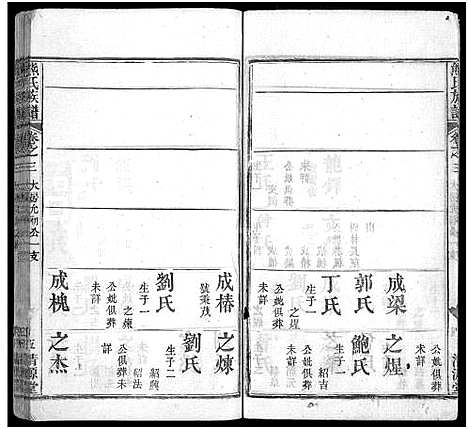 熊氏族譜
卷之三
大房
成梁
公妣俱葬
未詳
郭氏
生子一
之煋
之煋
公妣俱葬
未詳
鮑氏
丁氏
生子一
紹吉
公妣俱葬
未詳
成椿
號秉茂
劉氏
生子一
之煉
公妣俱葬
未詳
之煉
劉氏
生子二
紹興
紹法
公妣俱葬未
詳
成槐
之杰
熊氏族譜
卷之三
支
五
清源堂